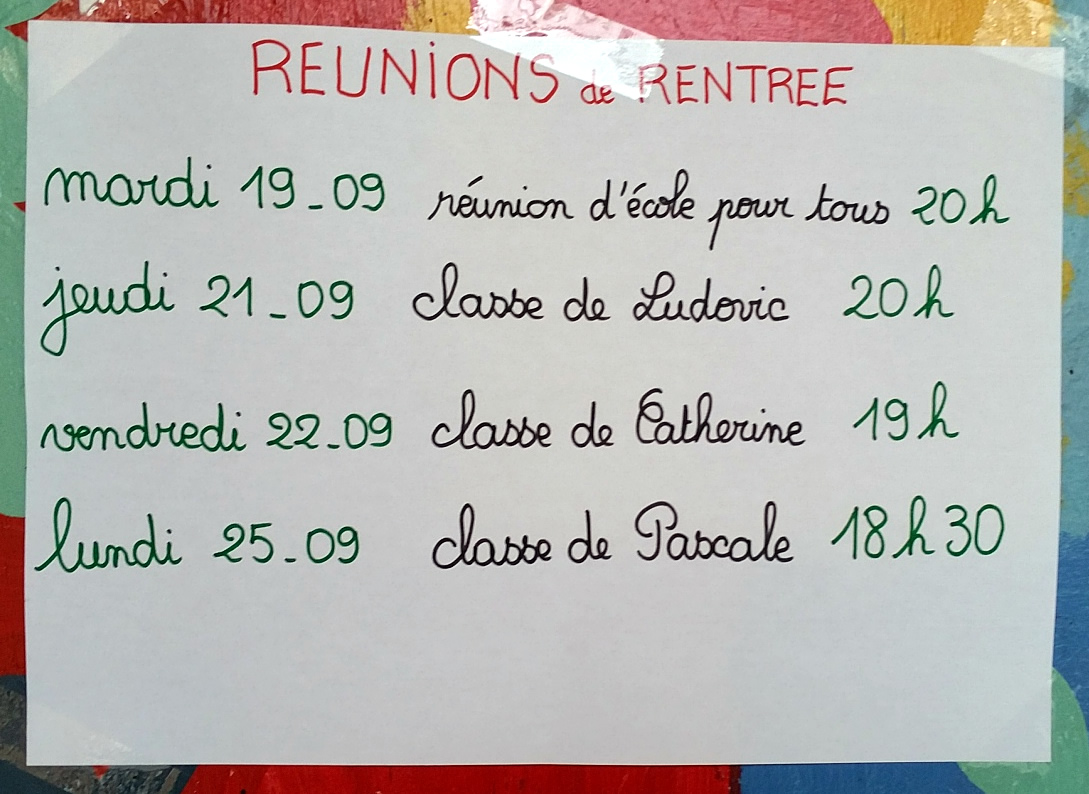 REUNIONS de RENTREE
mardi 19-09 réunion d'école pour tous 20h
jeudi 21-09 classe de Ludovic 20h
vendredi 22-09 classe de Catherine 19h
lundi 25-09 classe de Pascale 18h30